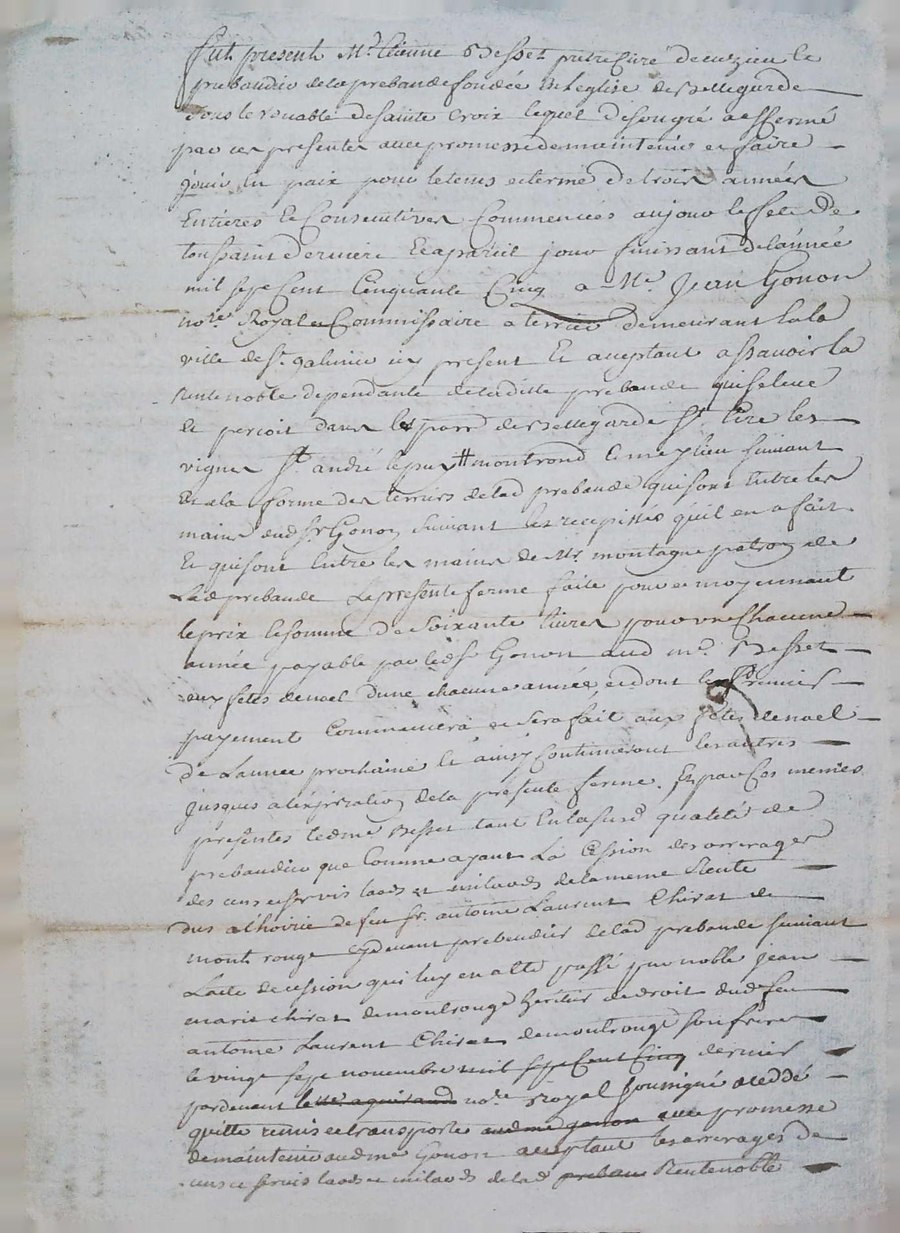 Fut present Mr Etienne Besset pretre Curé de cuzieu le
prebandier de la prebande fondée En leglise de Bellegarde
sous le vocable de sainte Croix lequel de son gré a affermé
par ces presentes avec promesse de maintenir et faire
jouir En paix pour le tems et terme de trois années
Entieres Et Consecutives Commencées au jour le fete de
toussaint derniere Et a pareil jour finissant de lannée
mil sept Cent Cinquante Cinq a Me Jean Gonon
nore Royal et Commissaire a terrier demeurant En la
ville de St galmier icy present Et acceptant a sçavoir la
Rente noble dependante de la ditte prebande qui se leve
Et perçoit dans les parr de Bellegarde St Cire les
vignes St andré le puy # montrond Et meylieu suivant
Et a la forme des terriers de lad prebande qui sont Entre les
mains dud Sr Gonon suivant les recepissés quil en a fait
Et qui sont Entre les mains de Mr montagne patron de
lad prebande La presente ferme faite pour et moyennant
le prix Et somme de Soixante livres pour une Chacune
année payable par led Sr Gonon aud me Besset
aux fetes de noel dune chacune année et dont le Premier
payement Commencera et sera fait aux fetes de noel
de Lannee prochaine Et ainsy Continueront les autres
jusques a lexpiration de la presente ferme. Et par Ces memes
presentes led me Besset tant En la susd qualité de
prebandier que Comme ayant La Cession des arrerages
des cens et servis laods et milaods de la meme Rente
dus a lhoirie de feu Sr antoine Laurent Chirat de
mont rouge cydevant prebendier de lad prebande suivant
Lacte de cession qui luy en a eté passé par noble jean
marie chirat de montrouge heritier de droit dud feu
antoine Laurent Chirat de montrouge son frere
le vingt sept novembre mil sept Cent Cinq dernier
pardevant nore Royal soussigné a cedé
quitté remis et transporté aud me gonon avec promesse
de maintenir aud me Gonon acceptant les arrerages de
cens et servis laods et milaods de lad preban Rente noble